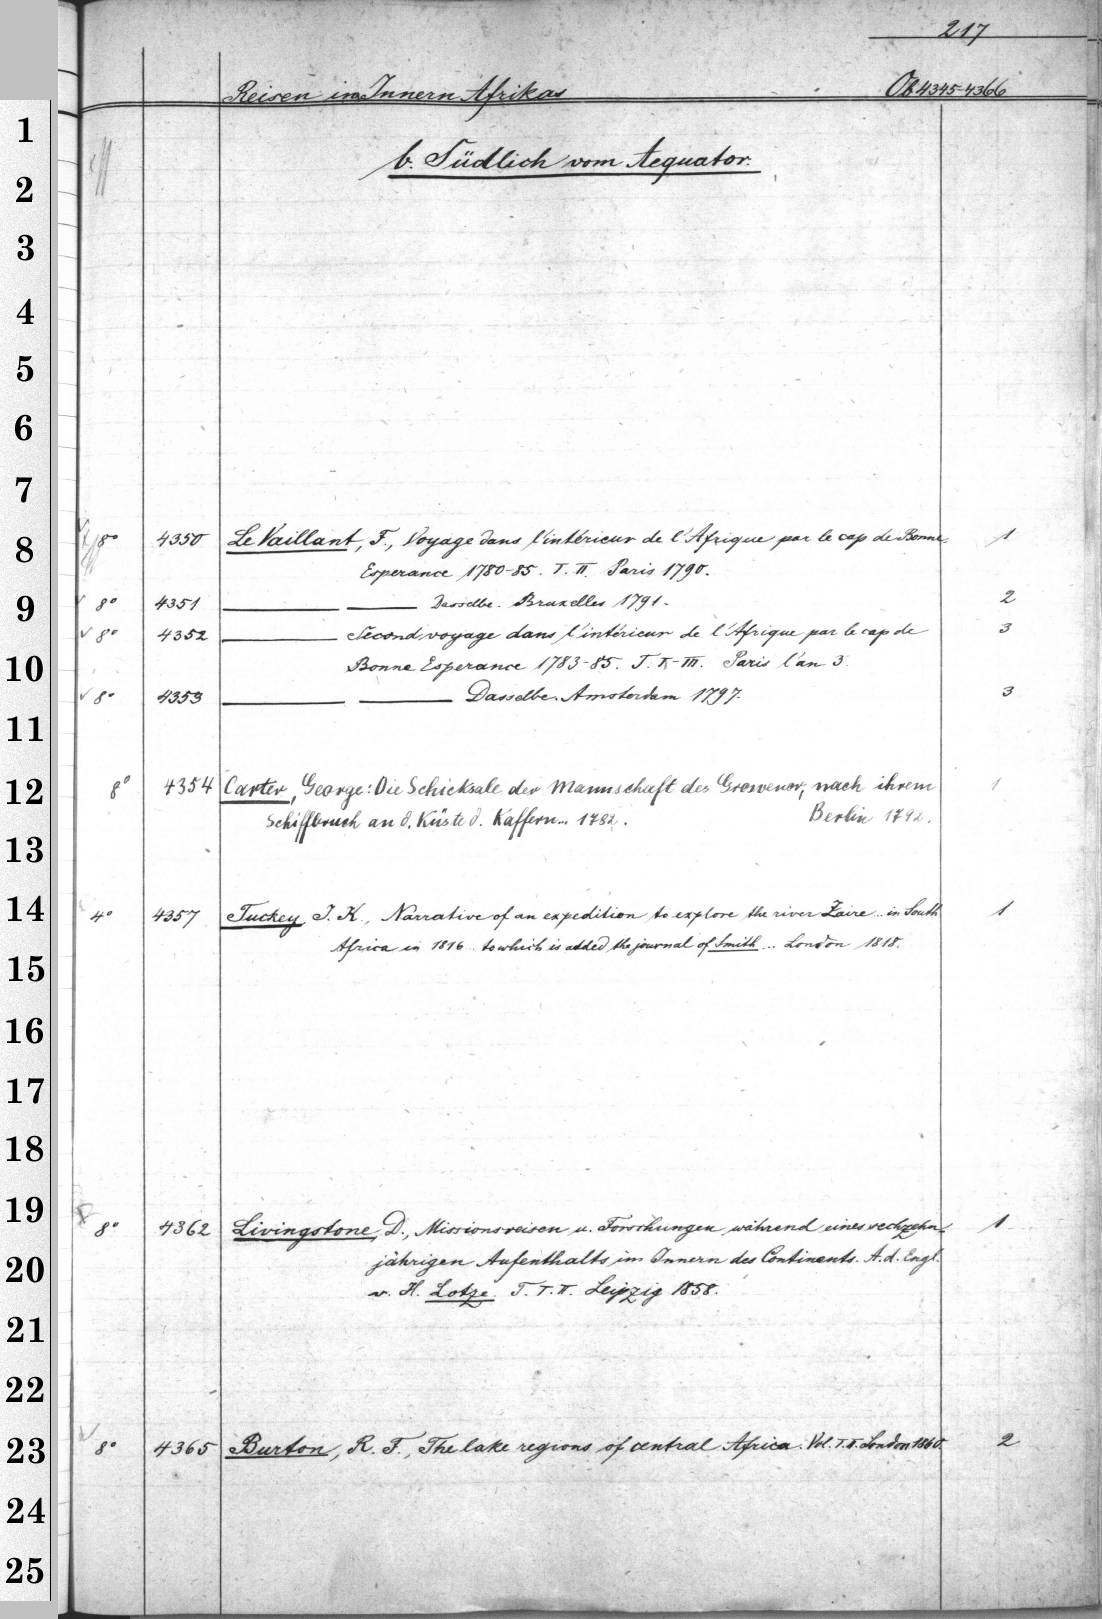 217
Reisen im Innern Afrikas Ob 4345-4366
b. Südlich vom Aequator.
1
2
3
4
5
6
7
8
8° 4350 Le Vaillant, F., Voyage dans l'intérieur de l'Afrique par le cap de Bonne- 1
Esperance 1780-85. T. I. II. Paris 1790.
9
8° 4351 Dasselbe. Bruxelles 1791. 2
8° 4352 Second voyage dans l'intérieur de l'Afrique par le cap de 3
10
Bonne Esperance 1783-85. T. I-III. Paris l'an 3.
8° 4353 Dasselbe. Amsterdam 1797. 3
11
12
8° 4354 Carter, George: Die Schicksale der Mannschaft des Growenor, nach ihrem 1
Schiffbruch an d. Küste d. Kaffern... 1782. Berlin 1792.
13
14
4° 4357 Tuckey J. K., Narrative of an expedition to explore the river Zaire .. in South 1
Africa in 1816 .. to which is added the journal of Smith ... London 1818.
15
16
17
18
19
8° 4362 Livingstone, D., Missionsreisen u. Forschungen während eines sechzehn- 1
jährigen Aufenthalts im Innern des Continents. A. d. Engl.
20
v. H. Lotze. T. I. II. Leipzig 1858.
21
22
23
8° 4365 Burton, R. F., The lake regions of central Africa. Vol. I. II. London 1860. 2
24
25